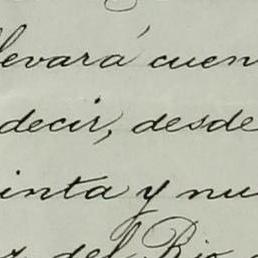 llevará cuen
decir, desde
inta y nu
z del Rio